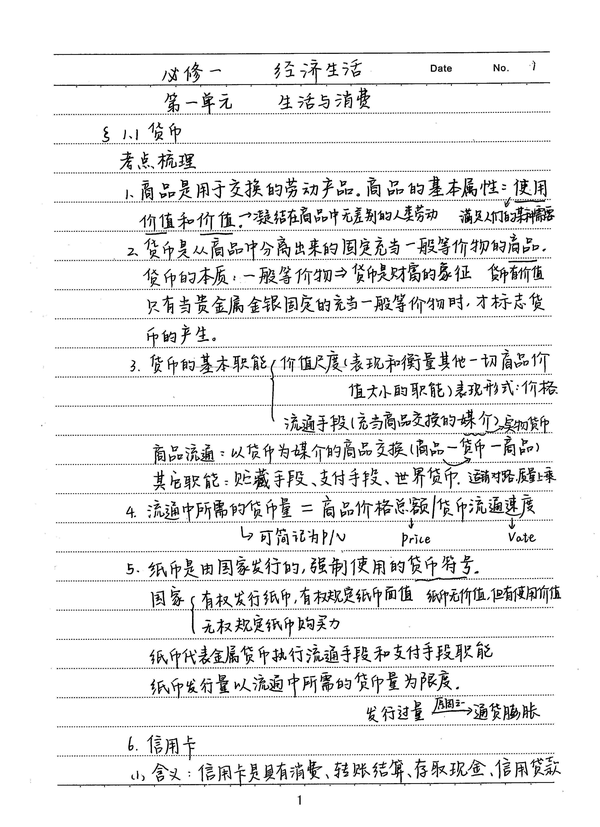 必修一 经济生活 Date No. 1
第一单元 生活与消费
§ 1.1 货币
考点梳理
1. 商品是用于交换的劳动产品。商品的基本属性：使用
价值和价值。→凝结在商品中无差别的人类劳动 满足人们的某种需要
2. 货币是从商品中分离出来的固定充当一般等价物的商品。
货币的本质：一般等价物⇒货币是财富的象征 货币有价值
只有当贵金属金银固定的充当一般等价物时，才标志货
币的产生。
3. 货币的基本职能 价值尺度（表现和衡量其他一切商品价
值大小的职能）表现形式：价格
流通手段（充当商品交换的媒介）→实物货币
商品流通：以货币为媒介的商品交换（商品—货币—商品）
其它职能：贮藏手段、支付手段、世界货币.
4. 流通中所需的货币量 = 商品价格总额/货币流通速度
↳可简记为P/V Price Vate
5. 纸币是由国家发行的，强制使用的货币符号。
国家 有权发行纸币，有权规定纸币面值 纸币无价值，但有使用价值
无权规定纸币购买力
纸币代表金属货币执行流通手段和支付手段职能
纸币发行量以流通中所需的货币量为限度。
发行过量 原因之一→通货膨胀
6. 信用卡
(1) 含义：信用卡是具有消费、转账结算、存取现金、信用贷款
1